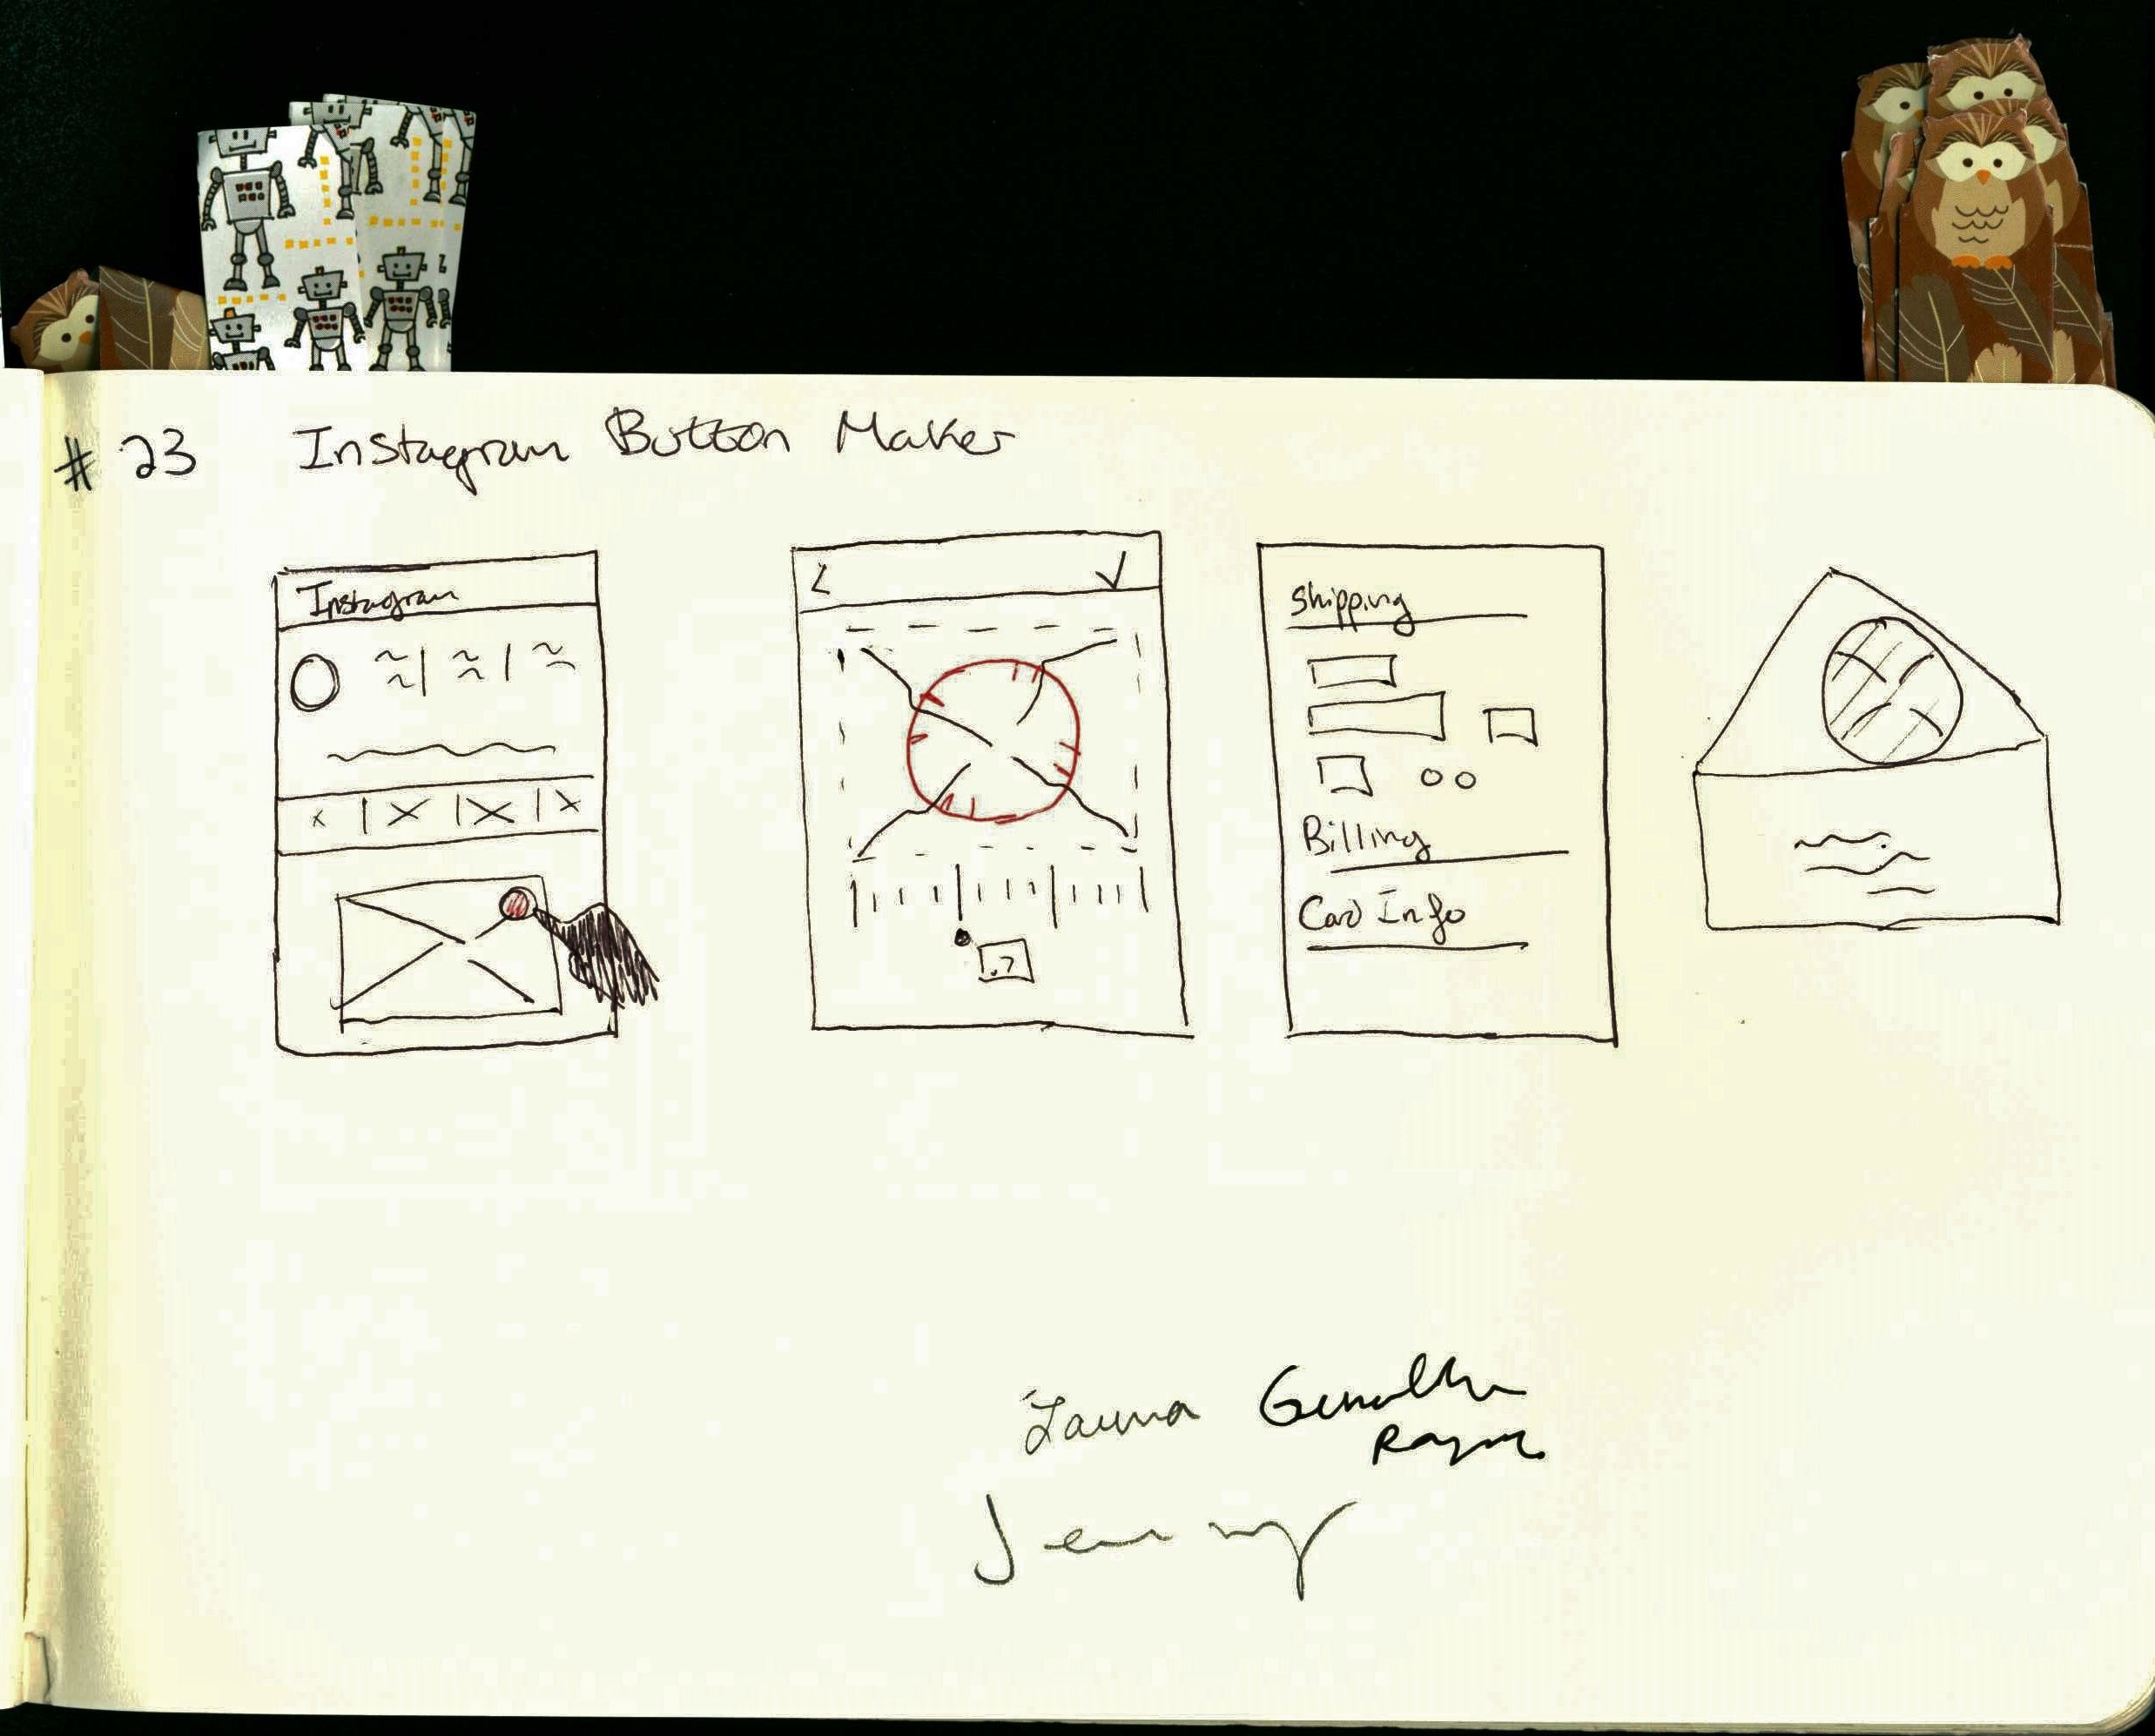 # 23 Instagram Button Maker
Instagram
Shipping
Billing
Card Info
.7
Launa
Jenny